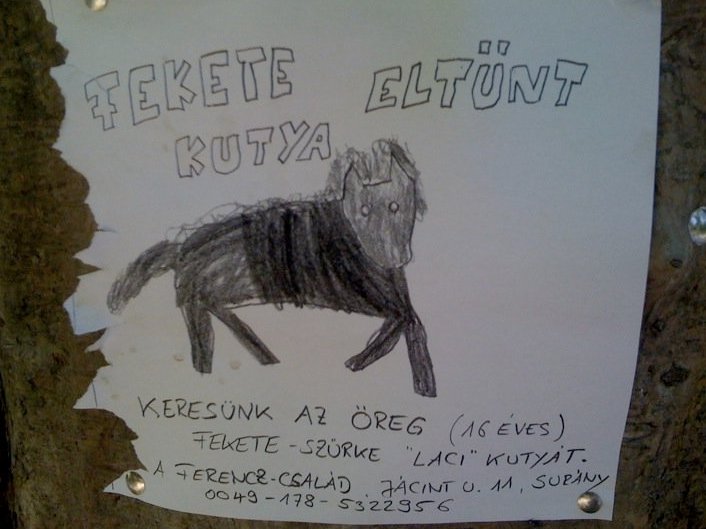 FEKETE ELTÜNT
KUTYA
KERESÜNK AZ ÖREG (16 ÉVES)
FEKETE-SZÜRKE "LACI" KUTYÁT.
A FERENCZ-CSALÁD JÁCINT U. 11, SURÁNY
0049-178-5322956